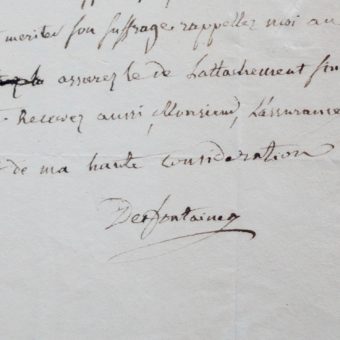 meriter son suffrage rappellez moi au
assurez le de L'attachement
Recevez aussi, Monsieur, L'assurance
de ma haute Consideration
Desfontaines